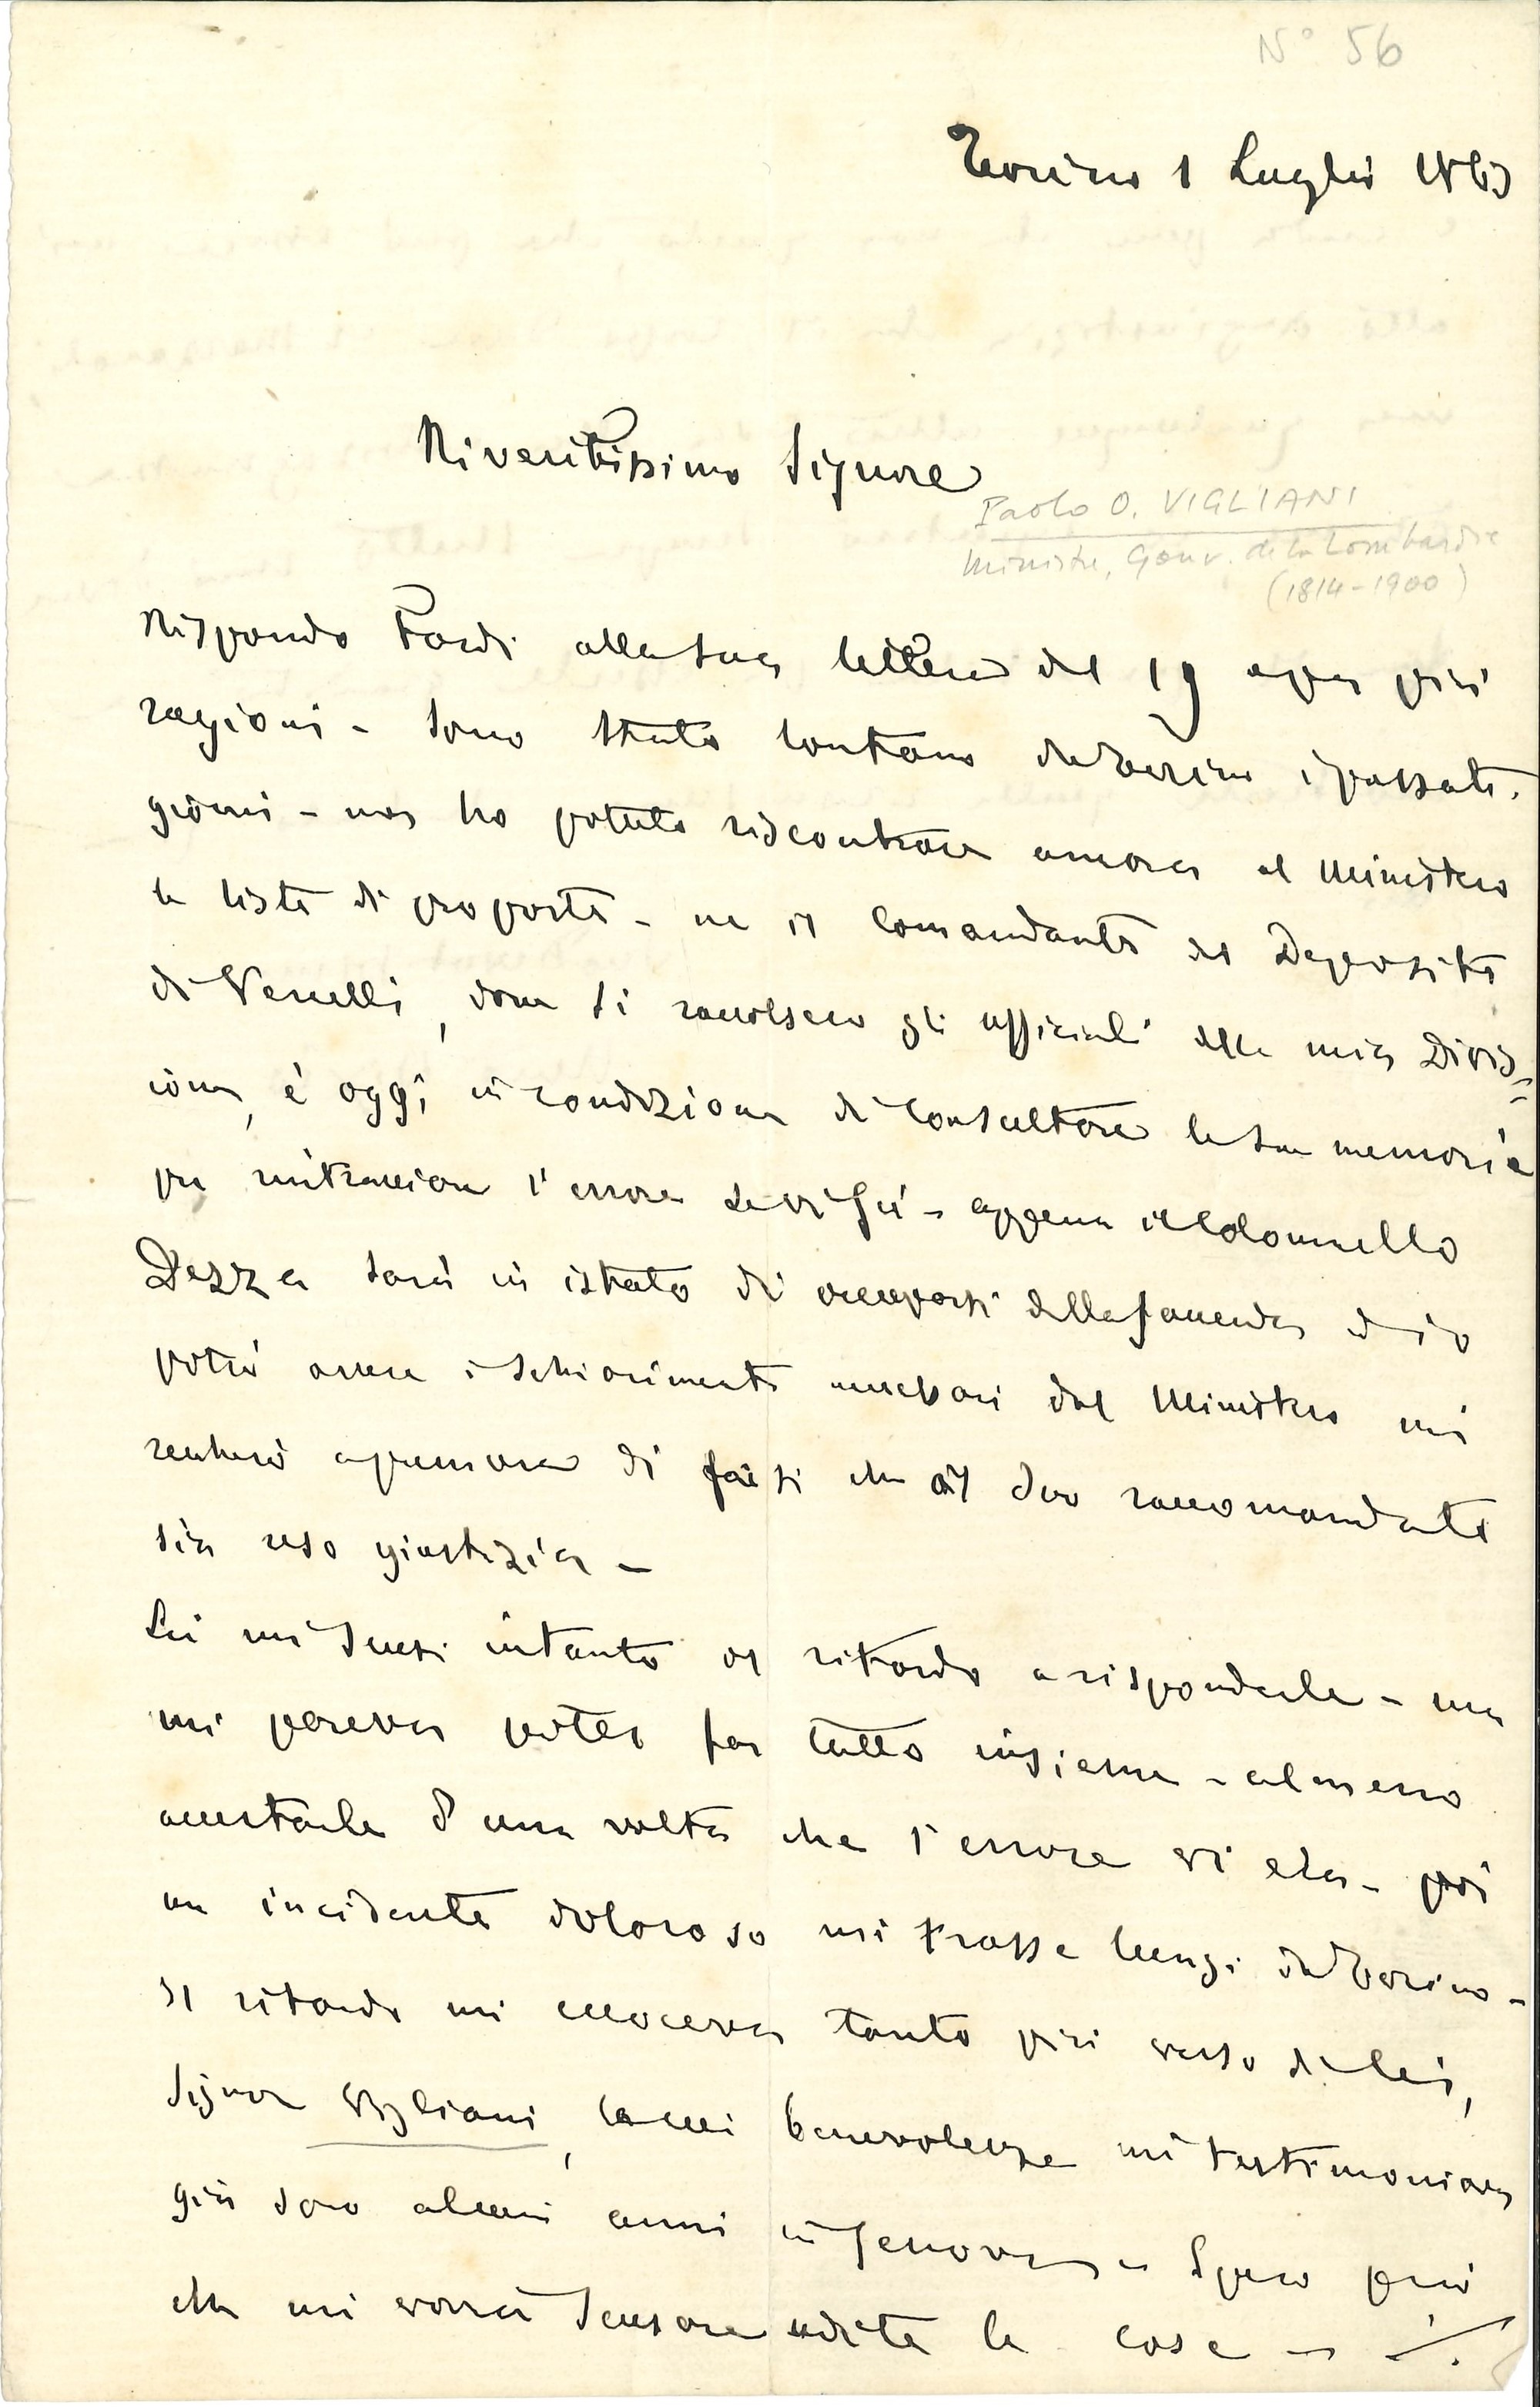 N° 56
Torino 1 Luglio 1863
Riveritissimo Signore
Paolo O. VIGLIANI
Ministre, Gouv. de la Lombardie
(1814-1900)
Rispondo tardi alla sua lettera del 19 a più
ragioni - sono stato lontano da Torino i passati
giorni - non ho potuto riscontrare ancora al Ministero
le liste di proposte - ne il Comandante del Deposito
di Vercelli, dove si raccolsero gli ufficiali della mia Divis=
ione, è oggi in condizione di consultare la sua memoria
per rintracciare l'errore se vi fu - appena il Colonnello
Dezza sarà in istato di occuparsi della faccenda ed io
potrò avere i schiarimenti necessari dal Ministero mi
recherò a premura di far si che al suo raccomandato
sia reso giustizia -
Lei mi scusi intanto il ritardo a risponderle - ma
mi pareva poter far tutto insieme - almeno
accertarla d'una volta che l'errore vi era - poi
un incidente doloroso mi trasse lungi da Torino -
Il ritardo mi coceva tanto più verso di lei,
Signor Vigliani, la cui benevolenza mi testimoniava
già sono alcuni anni in Genova - Spero però
che mi vorrà scusare udite le cose -